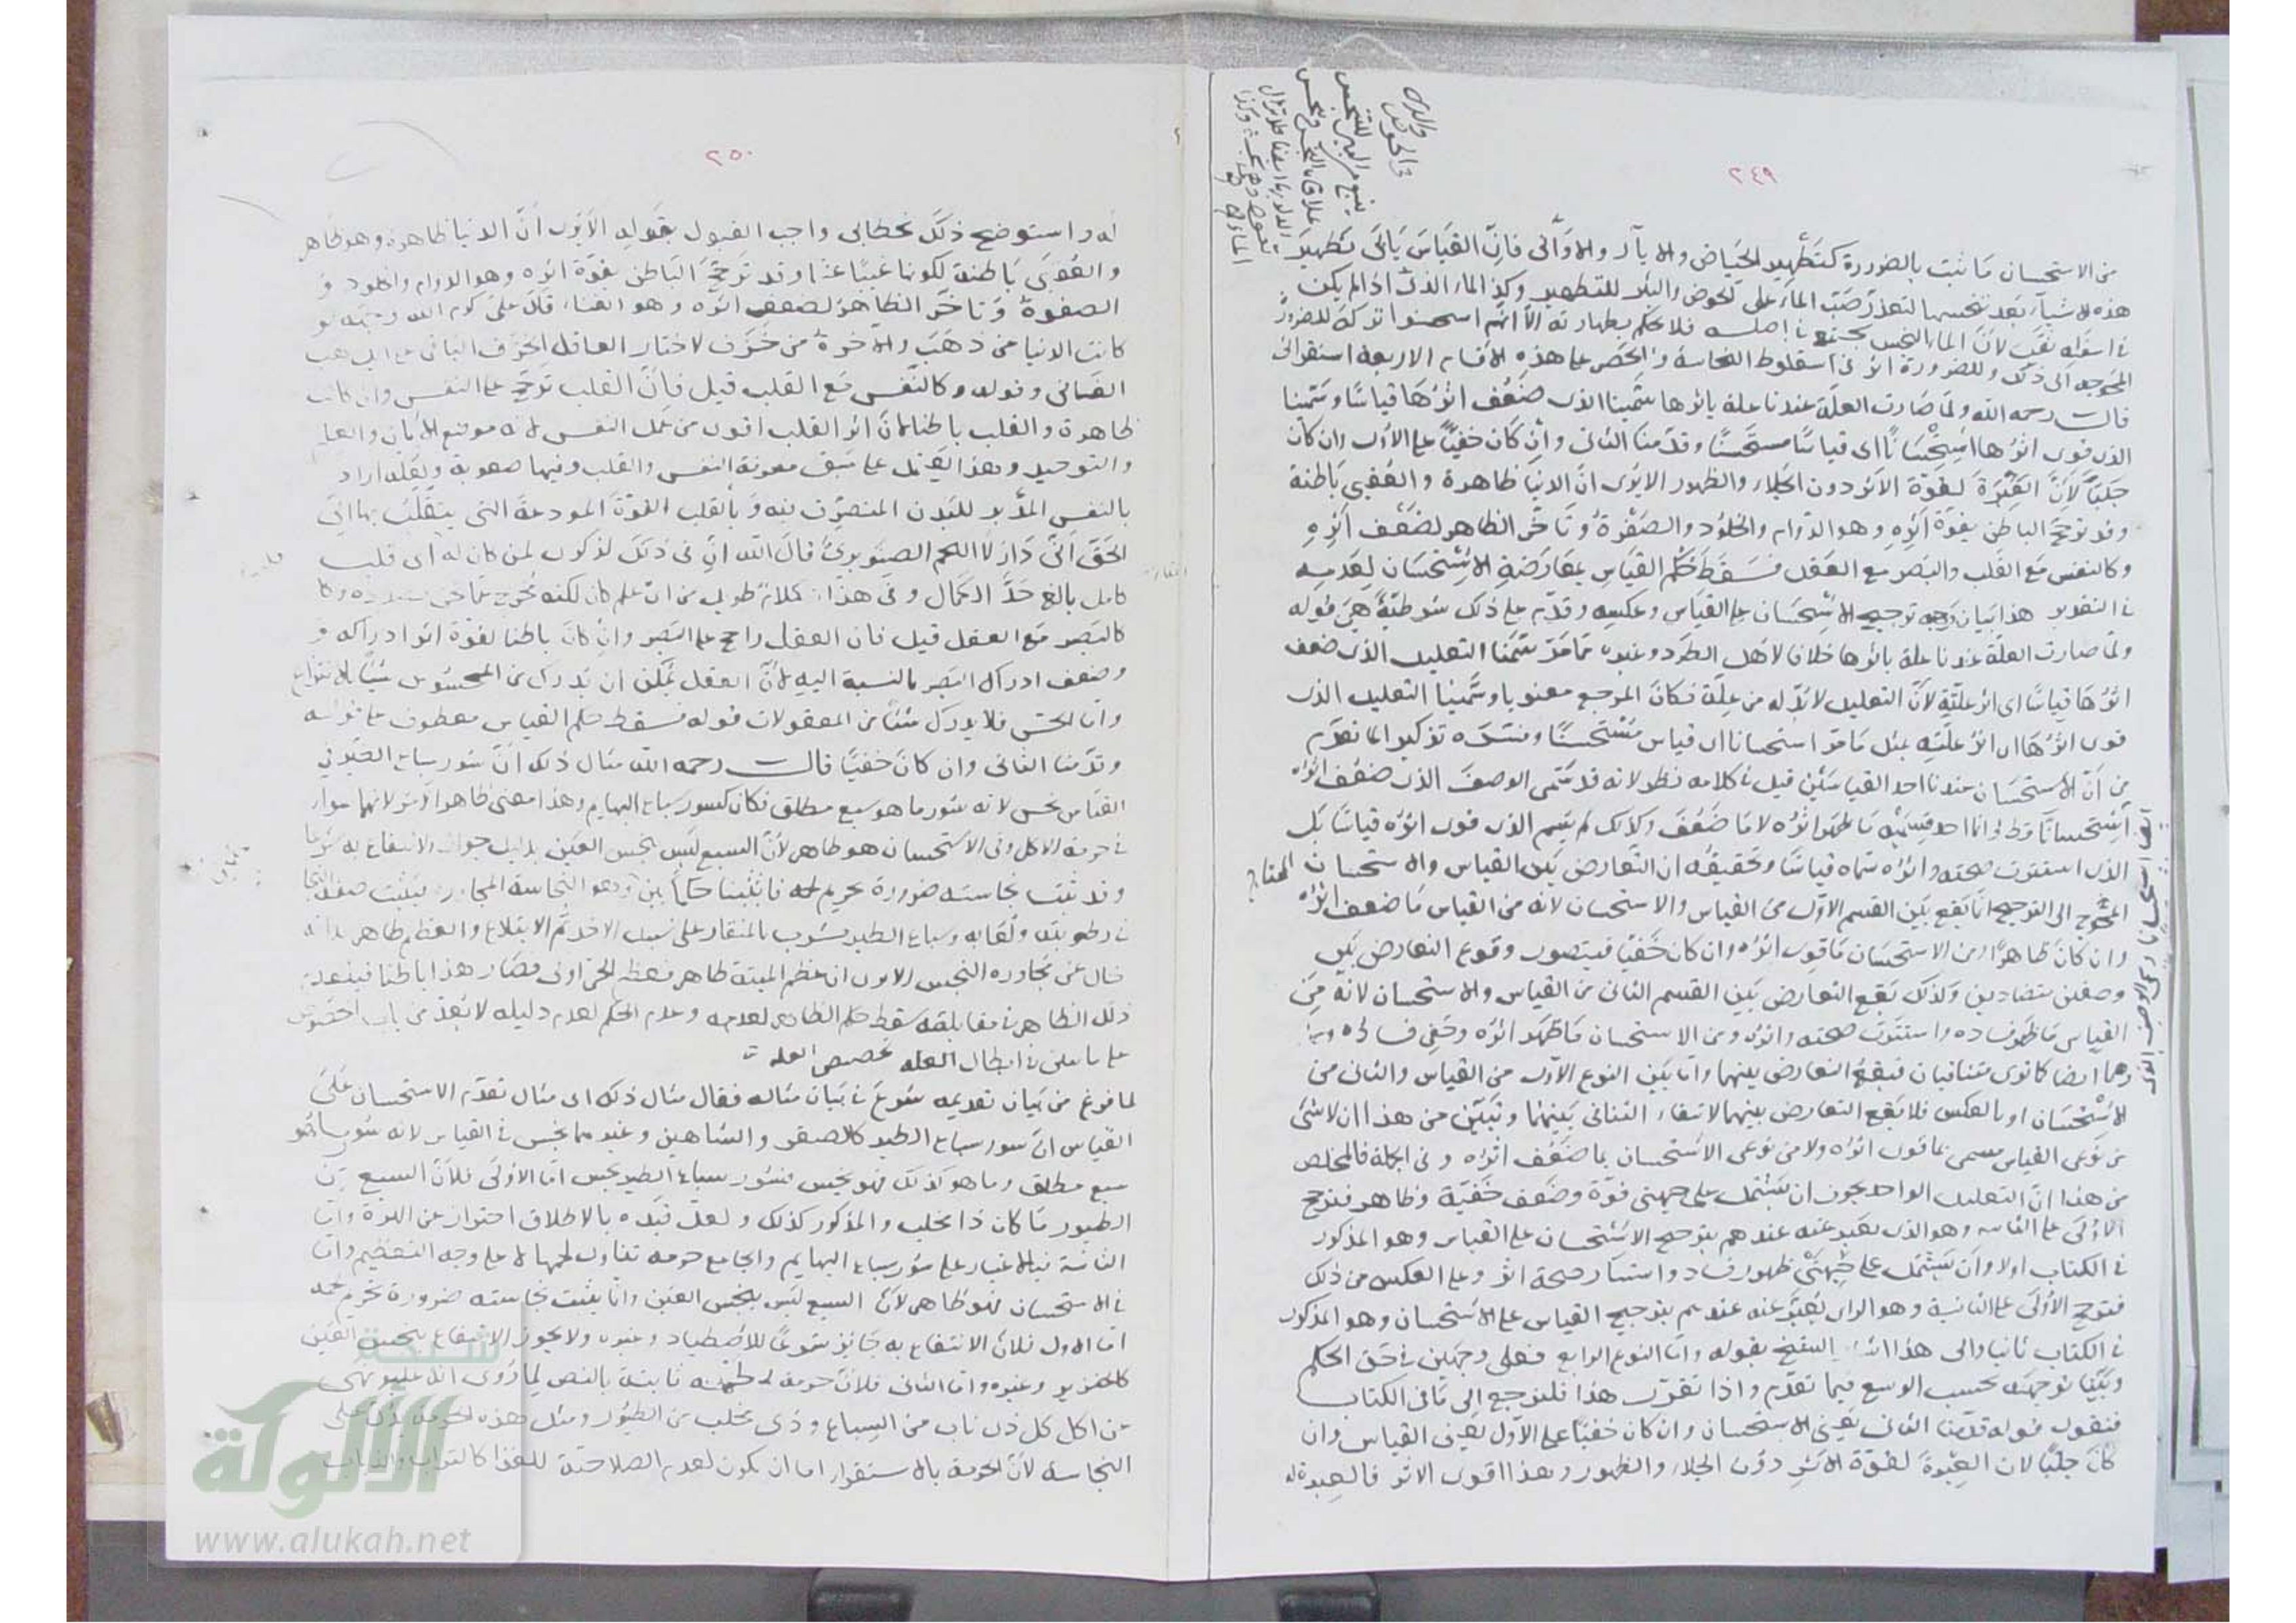 ٢٤٩
من الاستحسان ما ثبت بالضرورة كتطهير الحياض والآبار والاواني فان القياس يأبى تطهير
هذه الاشياء بعد تنجسها لتعذر صب الماء على الحوض والبئر للتطهير وكذا الماء الذي اذا لم يكن
في اسفله ثقب لأن الماء النجس يجتمع في اصله فلا يحكم بطهارته الا انهم استحسنوا تركه للضرورة
المحوجة الى ذلك وللضرورة اثر في اسقاط النجاسة والحصر على هذه الاقسام الاربعة استقرائي
قال رحمه الله ولما صارت العلة عندنا علة باثرها سمينا الذي ضعف اثرها قياسا وسمينا
الذي قوي اثرها استحسانا اي قياسا مستحسنا وقدمنا الثاني وان كان خفيا على الاول وان كان
جليا لأن العبرة لقوة الاثر دون الجلاء والظهور الا يرى ان الدنيا ظاهرة والعقبى باطنة
وقد ترجح الباطن بقوة اثره وهو الدوام والخلود والصفوة وتأخر الظاهر لضعف اثره
وكالنفس مع القلب والبصر مع العقل فسقط حكم القياس بمعارضة الاستحسان لعدمه
في التقدير هذا بيان وجه ترجيح الاستحسان على القياس وعكسه وقدم على ذلك شرطية هي قوله
ولما صارت العلة عندنا علة باثرها خلافا لأهل الطرد وغيره مما مر سمينا التعليل الذي ضعف
اثرها قياسا اي اثر علته لأن التعليل لا بد له من علة فكان المرجع معنويا وسمينا التعليل الذي
قوي اثرها اي اثر علته بمثل ما مر استحسانا اي قياس مستحسنا وفسره تذكيرا لما تقدم
من أن الاستحسان عندنا احد القياسين قيل في كلامه نظر لانه قد سمى الوصف الذي ضعف اثره
استحسانا احد قسميه ما ظهر اثره لا ما ضعف وكذلك لم يسم الذي قوي اثره قياسا بل
الذي استترت صحته واثره سماه قياسا وتحقيقه ان التعارض بين القياس والاستحسان المحتاج
المحوج الى الترجيح انما يقع بين القسم الاول من القياس والاستحسان لانه من القياس ما ضعف اثره
وان كان ظاهرا ومن الاستحسان ما قوي اثره وان كان خفيا فيتصور وقوع التعارض بين
وصفين متضادين وكذلك يقع التعارض بين القسم الثاني من القياس والاستحسان لانه من
القياس ما ظهر فساده واستترت صحته واثره ومن الاستحسان ما ظهر اثره وخفي فساده
وهما ايضا كما ترى متنافيان فيقع التعارض بينهما واما بين النوع الاول من القياس والثاني من
الاستحسان او بالعكس فلا يقع التعارض بينهما لانتفاء التنافي بينهما وتبين من هذا ان لا شيء
من نوعي القياس مسمى بما قوي اثره ولا من نوعي الاستحسان بما ضعف اثره وفي الجملة فالمخلص
من هذا ان التعليل الواحد يجوز ان يشتمل على جهتي قوة وضعف خفية وظاهر فترجح
الاولى على الثانية وهو الذي يعبر عنه عندهم بترجيح الاستحسان على القياس وهو المذكور
في الكتاب اولا وان يشتمل على جهتي ظهور فساد واستتار صحة اثر وعلى العكس من ذلك
فترجح الاولى على الثانية وهو الذي يعبر عنه عندهم بترجيح القياس على الاستحسان وهو المذكور
في الكتاب ثانيا والى هذا اشار الشيخ بقوله واما النوع الرابع فعلى وجهين في حق الحكم
وبينا توجيهه بحسب الوسع فيما تقدم واذا تقرر هذا فلنرجع الى ما في الكتاب
فنقول قوله قدمنا الثاني يعني الاستحسان وان كان خفيا على الاول يعني القياس وان
كان جليا لان العبرة لقوة الاثر دون الجلاء والظهور وهذا اقوى الاثر فالعبرة له
٢٥٠
له واستوضح ذلك بخطابي واجب القبول بقوله الا يرى أن الدنيا ظاهرة وهو ظاهر
والعقبى باطنة لكونها غيبا عنا وقد ترجح الباطن بقوة اثره وهو الدوام والخلود و
الصفوة وتأخر الظاهر لضعف اثره وهو الفناء قال علي كرم الله وجهه لو
كانت الدنيا من ذهب والآخرة من خزف لاختار العاقل الخزف الباقي على الذهب
الفاني وقوله وكالنفس مع القلب قيل فان القلب ترجح على النفس وان كانت
ظاهرة والقلب باطنا لان اثر القلب اقوى من عمل النفس لانه موضع الايمان والعلم
والتوحيد وهذا يحتمل على سبق معرفة النفس والقلب وفيها صعوبة ولعله اراد
بالنفس المدبر للبدن المتصرف فيه وبالقلب القوة المودعة التي يتقلب بها الى
الحق انى دار لا اللحم الصنوبري قال الله ان في ذلك لذكرى لمن كان له اي قلب
كامل بالغ حد الكمال وفي هذا كلام طويل من اي علم كان لكنه نخرج عما نحن بصدده وكا
كالبصر مع العقل قيل فان العقل راجح على البصر وان كان باطنا لقوة اثر ادراكه و
وضعف ادراك البصر بالنسبة اليه لأن العقل يمكن ان يدرك من المحسوس شيئا بالانتزاع
واما الحس فلا يدرك شيئا من المعقولات قوله فسقط حكم القياس معطوف على قوله
وقدمنا الثاني وان كان خفيا قال رحمه الله مثال ذلك ان سؤر سباع الطير في
القياس نجس لانه سؤر ما هو سبع مطلق فكان كسؤر سباع البهايم وهذا معنى ظاهر الاثر لانهما سواء
في حرمة الاكل وفي الاستحسان هو طاهر لأن السبع ليس بنجس العين بدليل جواز الانتفاع به شرعا
وقد ثبت نجاسته ضرورة تحريم لحمه فاثبتنا حكما بين وهو النجاسة المجاورة فيثبت صفة النجا
في رطوبته ولعابه وسباع الطير يشرب بالمنقار على سبيل الاخذ ثم الابتلاع والعظم طاهر بذاته
خال عن مجاورة النجس الا يرى ان عظم الميتة طاهر فعظم الحي اولى فصار هذا باطنا فينعدم
ذلك الظاهر في مقابلته سقط حكم الظاهر لعدمه وعدم الحكم لعدم دليله لا يعد من باب الخصوص
على ما يبين في ابطال العلة تخصيص العلة
لما فرغ من بيان تقديمه شرع في بيان مثاله فقال مثال ذلك اي مثال تقدم الاستحسان على
القياس ان سؤر سباع الطير كالصقر والشاهين وغيرهما نجس في القياس لانه سؤر ما هو
سبع مطلق وما هو كذلك فهو نجس فسؤر سباع الطير نجس اما الاولى فلأن السبع من
الطيور ما كان ذا مخلب والمذكور كذلك ولعل قيده بالاطلاق احتراز عن الهرة واما
الثانية فبالاعتبار على سؤر سباع البهايم والجامع حرمة تناول لحمها لا على وجه التعظيم واما
في الاستحسان فهو طاهر لأن السبع ليس بنجس العين وانما يثبت نجاسته ضرورة تحريم لحمه
اما الاول فلأن الانتفاع به جائز شرعا للاصطياد وغيره ولا يجوز الانتفاع بنجس العين
كالخنزير وغيره واما الثاني فلأن حرمة لحمه ثابتة بالنص لما روي انه عليه نهى
عن اكل كل ذي ناب من السباع وذي مخلب من الطيور ومثل هذه الحرمة يدل على
النجاسة لأن الحرمة بالاستقراء اما ان يكون لعدم الصلاحية للغذا كالتراب والذباب
شبكة
الألوكة
www.alukah.net